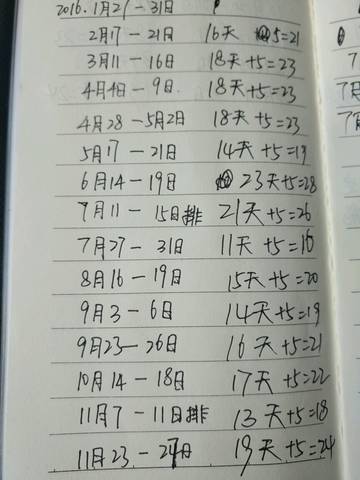 2016.1月27-31日
2月17-21日 16天 5=21
3月11-16日 18天+5=23
4月4日-9日 18天+5=23
4月28-5月2日 18天+5=23
5月17-21日 14天+5=19
6月14-19日 23天+5=28
7月11-15日排 21天+5=26
7月27-31日 11天+5=16
8月16-19日 15天+5=20
9月3-6日 14天+5=19
9月23-26日 16天+5=21
10月14-18日 17天+5=22
11月7-11日排 13天+5=18
11月23-27日 19天+5=24